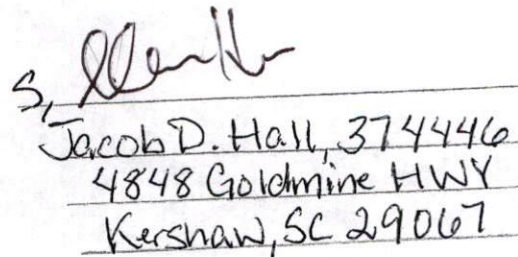 S,
Jacob D. Hall, 374446
4848 Goldmine HWY
Kershaw, SC 29067